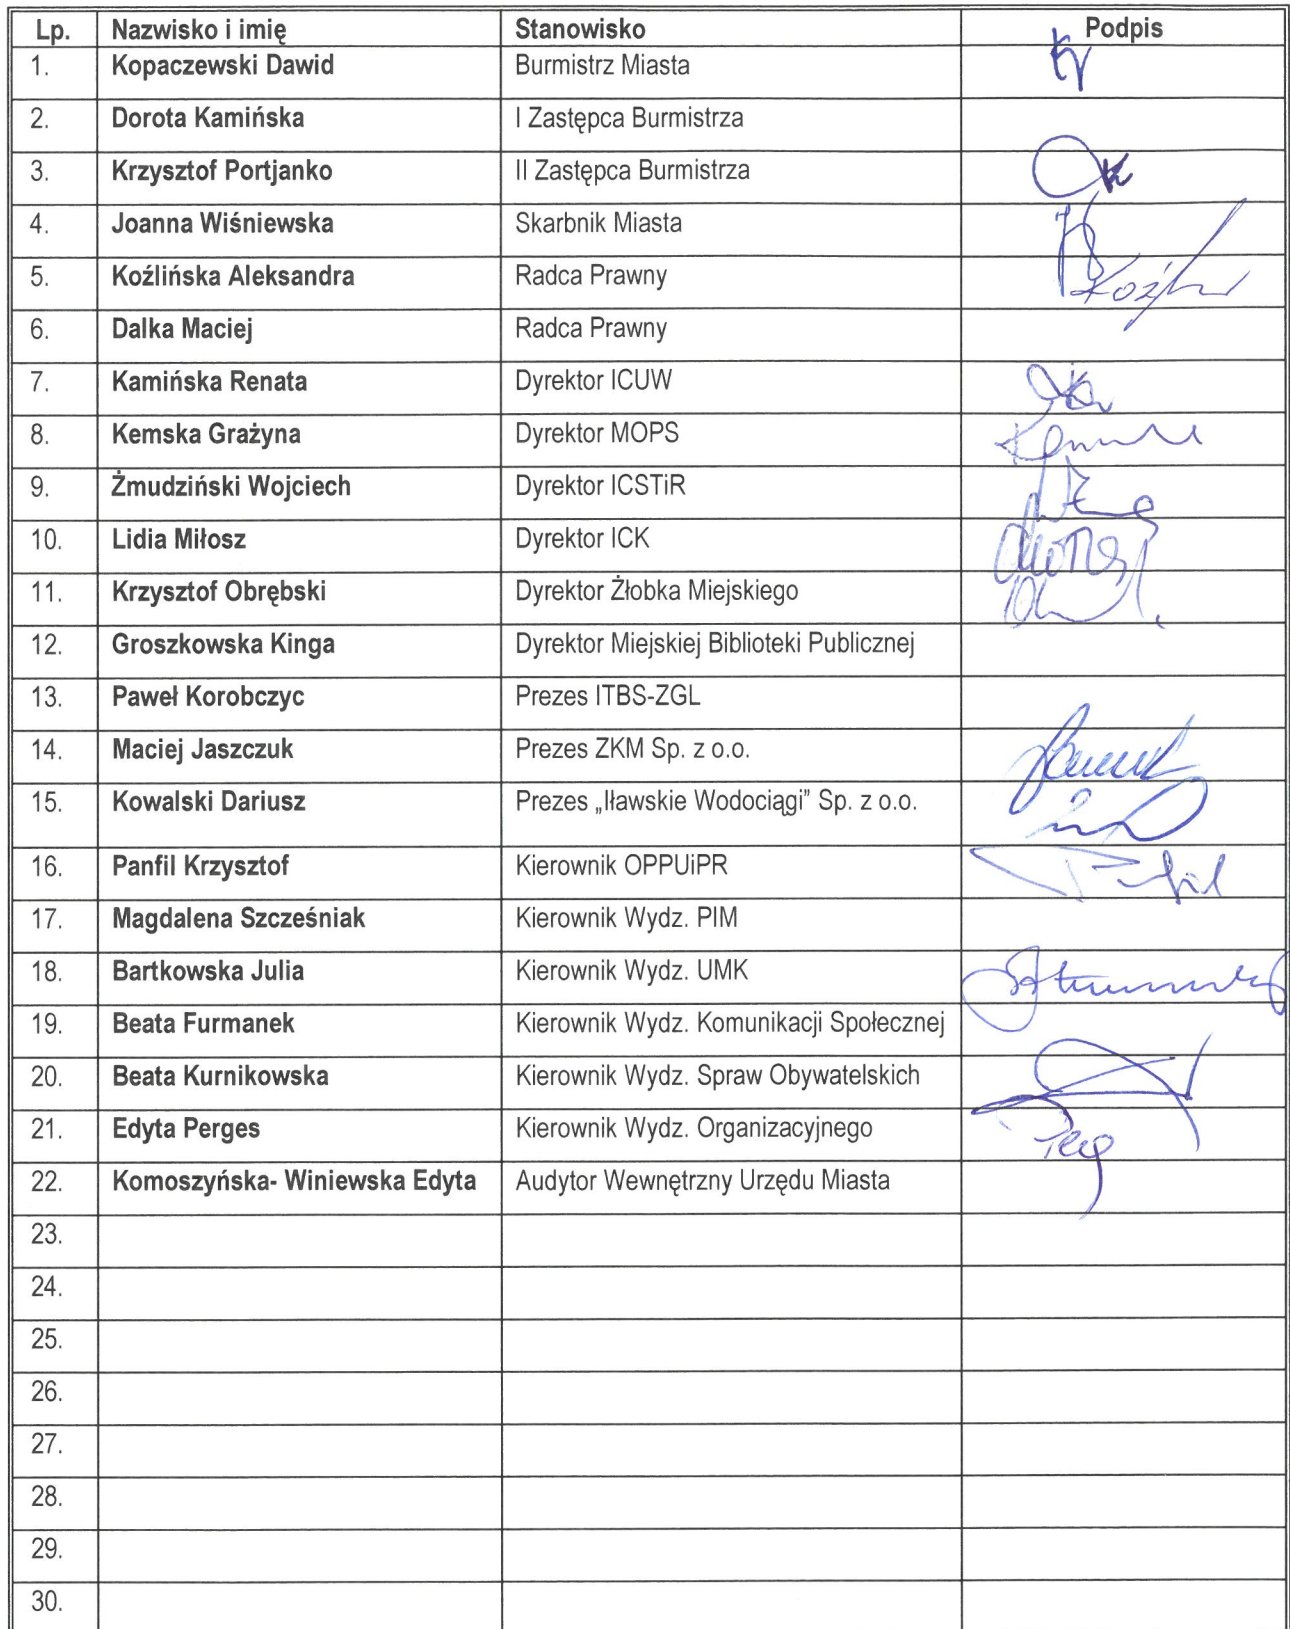 Lp. Nazwisko i imię Stanowisko Podpis
1. Kopaczewski Dawid Burmistrz Miasta
2. Dorota Kamińska I Zastępca Burmistrza
3. Krzysztof Portjanko II Zastępca Burmistrza
4. Joanna Wiśniewska Skarbnik Miasta
5. Koźlińska Aleksandra Radca Prawny
6. Dalka Maciej Radca Prawny
7. Kamińska Renata Dyrektor ICUW
8. Kemska Grażyna Dyrektor MOPS
9. Żmudziński Wojciech Dyrektor ICSTiR
10. Lidia Miłosz Dyrektor ICK
11. Krzysztof Obrębski Dyrektor Żłobka Miejskiego
12. Groszkowska Kinga Dyrektor Miejskiej Biblioteki Publicznej
13. Paweł Korobczyc Prezes ITBS-ZGL
14. Maciej Jaszczuk Prezes ZKM Sp. z o.o.
15. Kowalski Dariusz Prezes „Iławskie Wodociągi” Sp. z o.o.
16. Panfil Krzysztof Kierownik OPPUiPR
17. Magdalena Szcześniak Kierownik Wydz. PIM
18. Bartkowska Julia Kierownik Wydz. UMK
19. Beata Furmanek Kierownik Wydz. Komunikacji Społecznej
20. Beata Kurnikowska Kierownik Wydz. Spraw Obywatelskich
21. Edyta Perges Kierownik Wydz. Organizacyjnego
22. Komoszyńska- Winiewska Edyta Audytor Wewnętrzny Urzędu Miasta
23.
24.
25.
26.
27.
28.
29.
30.